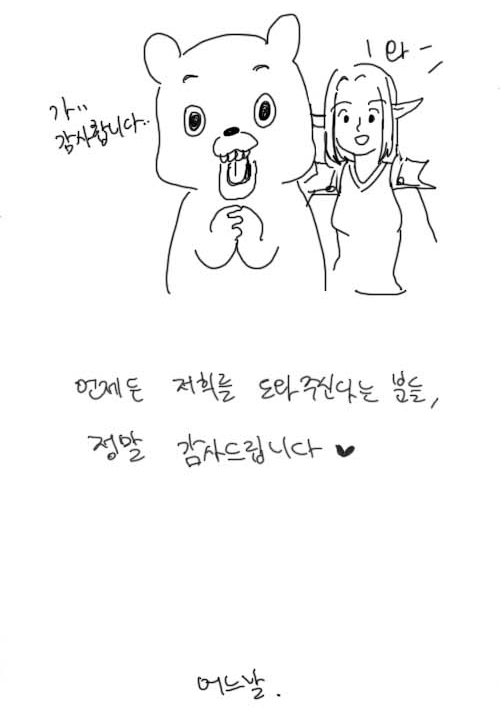 와
가..
감사합니다..
언제든 저희를 도와주신다는 분들,
정말 감사드립니다 ♥
어느날.